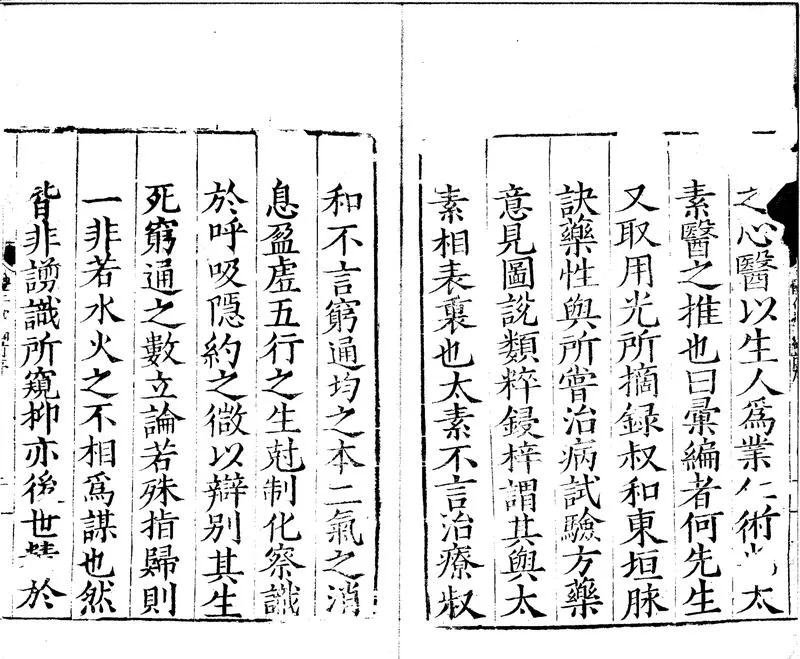 之心醫以生人爲業仁術也太
素醫之推也曰彙編者何先生
又取用光所摘録叔和東垣脉
訣藥性與所嘗治病試驗方藥
意見圖説類粹鋟梓謂其與太
素相表裏也太素不言治療叔
和不言窮通均之本二氣之消
息盈虛五行之生尅制化察識
於呼吸隱約之微以辯別其生
死窮通之數立論若殊指歸則
一非若水火之不相爲謀也然
皆非謭識所窺抑亦後世於